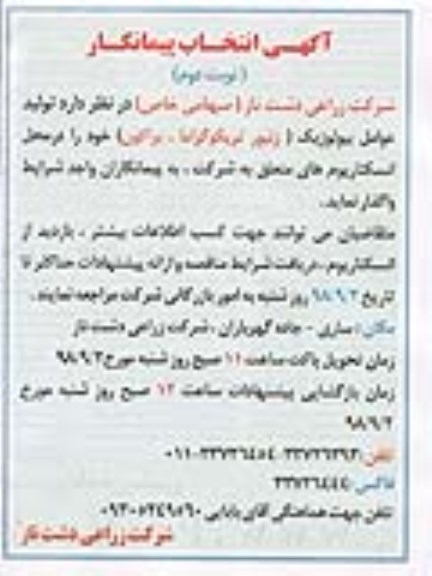 آگهی انتخاب پیمانکار
(نوبت دوم)
شرکت زراعی دشت ناز (سهامی خاص) در نظر دارد تولید
عوامل بیولوژیک (زنبور تریکوگراما ، براکون) خود را درمحل
انسکتاریوم های متعلق به شرکت ، به پیمانکاران واجد شرایط
واگذار نماید.
متقاضیان می توانند جهت کسب اطلاعات بیشتر ، بازدید از
انسکتاریوم ، دریافت شرایط مناقصه و ارائه پیشنهادات حداکثر تا
تاریخ ۹۸/۹/۲ روز شنبه به امور بازرگانی شرکت مراجعه نمایند.
مکان : ساری - جاده گهرباران ، شرکت زراعی دشت ناز
زمان تحویل پاکت ساعت ۱۱ صبح روز شنبه مورخ ۹۸/۹/۲
زمان بازگشایی پیشنهادات ساعت ۱۲ صبح روز شنبه مورخ
۹۸/۹/۲
تلفن: ۰۱۱-۳۳۷۲۶۴۵۴
فاکس: ۳۳۷۲۶۴۴۴
تلفن جهت هماهنگی آقای بابایی ۰۹۳۰۵۲۴۹۵۶۰
شرکت زراعی دشت ناز